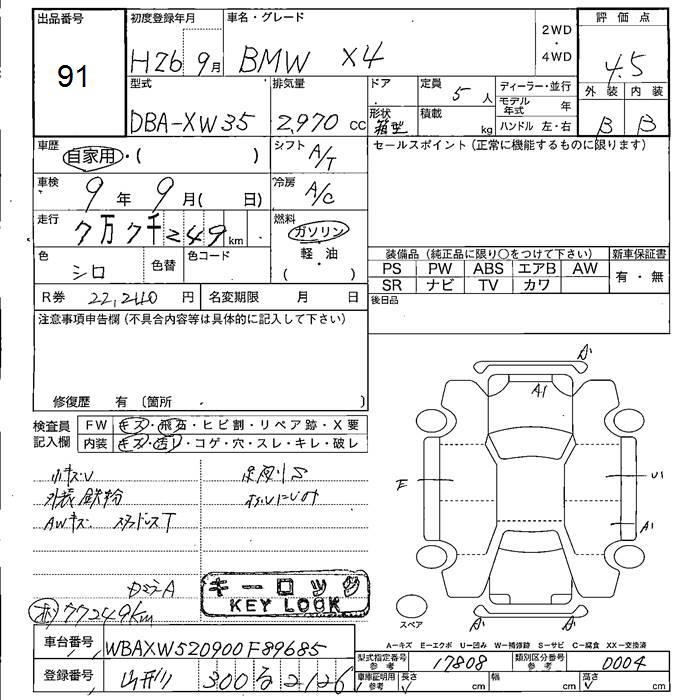 出品番号
91
初度登録年月
H26 9月
車名・グレード
BMW X4
2WD
・
4WD
評価点
4.5
外装 内装
B B
型式
DBA-XW35
排気量
2,970 cc
ドア
形状
箱型
定員
5 人
積載
kg
ディーラー・並行
モデル年式 年
ハンドル 左・右
車歴
自家用・( )
シフト
A/T
セールスポイント (正常に機能するものに限ります)
車検
9年 9月( 日)
冷房
A/C
走行
7万7千249km
燃料
ガソリン
・
軽油
( )
色
シロ
色替
色コード
装備品 (純正品に限り○をつけて下さい)
新車保証書
PS PW ABS エアB AW
SR ナビ TV カワ
有・無
R券 22,240円
名変期限 月 日
後日品
注意事項申告欄 (不具合内容等は具体的に記入して下さい)
修復歴 有 〔箇所 〕
検査員
記入欄
FW キズ・飛石・ヒビ割・リペア跡・X要
内装 キズ・汚レ・コゲ・穴・スレ・キレ・破レ
小キズU
外装鉄粉
AWキズ スタッドレスT
A'
A1
E
U1
A1
A'
A'
スペア
77249km
キーロック
KEY LOCK
A=キズ E=エクボ U=凹み W=補修跡 S=サビ C=腐食 XX=交換済
車台番号
WBAXW520900F89685
型式指定番号
参考
17808
類別区分番号
参考
0004
登録番号
山形 300 る 2126
車庫証明用
参考
長さ
cm
幅
cm
高さ
cm